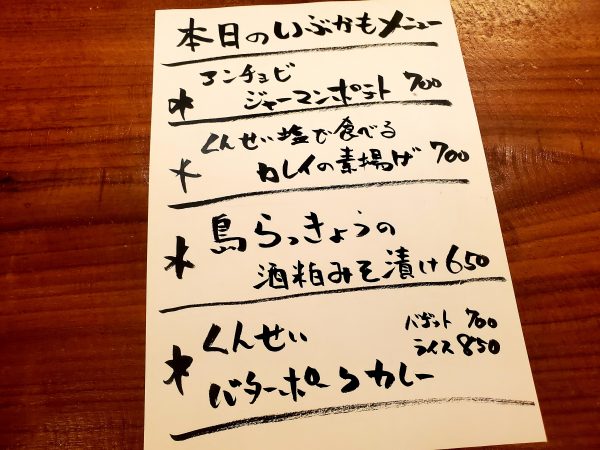 本日のいぶかもメニュー
アンチョビ
ジャーマンポテト 700
くんせい塩で食べる
カレイの素揚げ 700
島らっきょうの
酒粕みそ漬け 650
くんせい バゲット 700
ライス 850
バターポークカレー